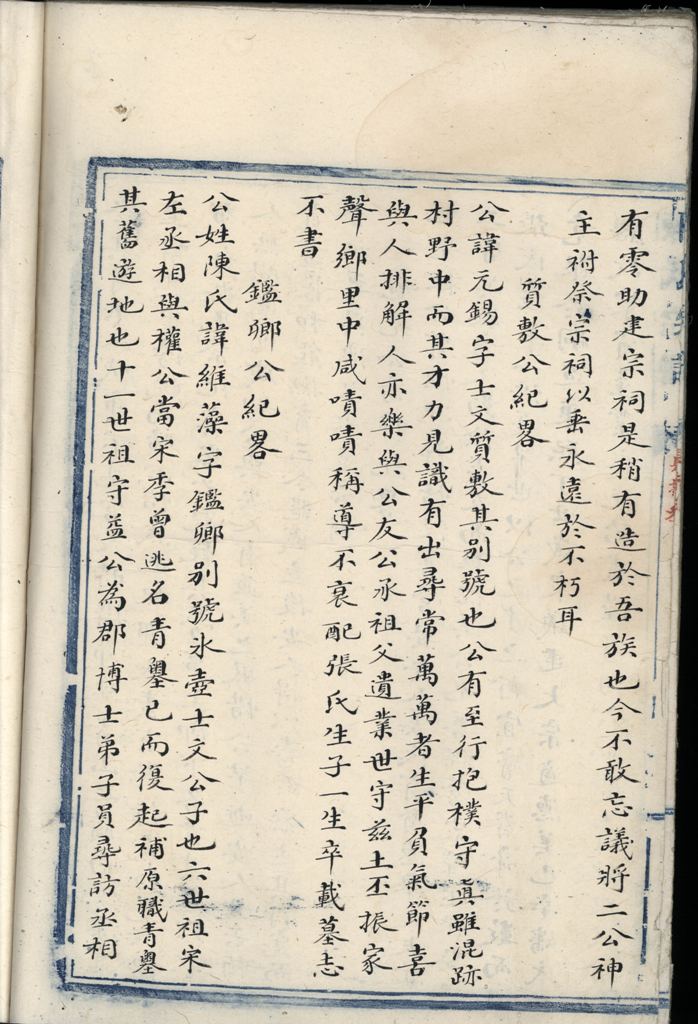 有零助建宗祠是稍有造於吾族也今不敢忘議將二公神
主祔祭宗祠以垂永遠於不朽耳
質敷公紀畧
公諱元錫字士文質敷其别號也公有至行抱樸守眞雖混跡
村野中而其才力見識有出尋常萬萬者生平負氣節喜
與人排解人亦樂與公友公承祖父遺業世守兹土丕振家
聲鄉里中咸嘖嘖稱導不衰配張氏生子一生卒載墓志
不書
鑑卿公紀畧
公姓陳氏諱維藻字鑑卿别號氷壺士文公子也六世祖宋
左丞相與權公當宋季曾逃名青嶴已而復起補原職青嶴
其舊遊地也十一世祖守益公為郡博士弟子員尋訪丞相